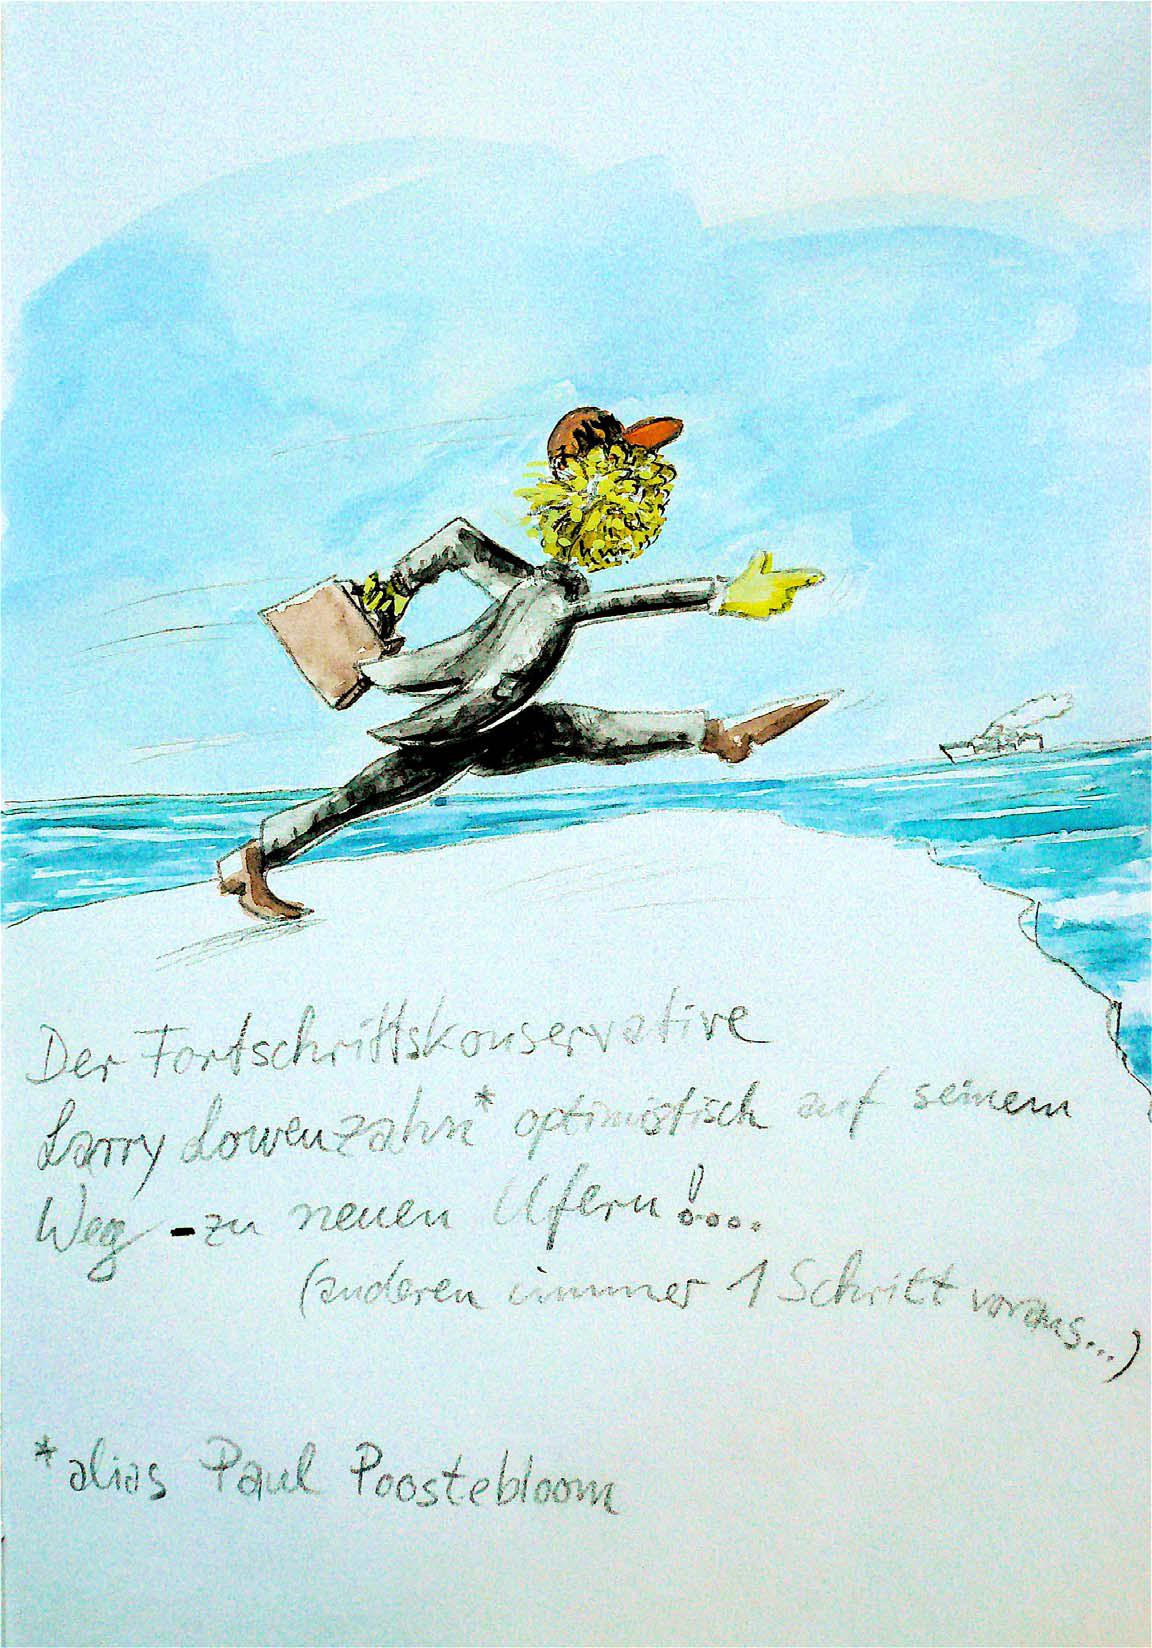 Der Fortschrittskonservative
Larry Lowenzahn* optimistisch auf seinem
Weg - zu neuen Ufern!....
(anderen immer 1 Schritt voraus...)
*alias Paul Poostebloom